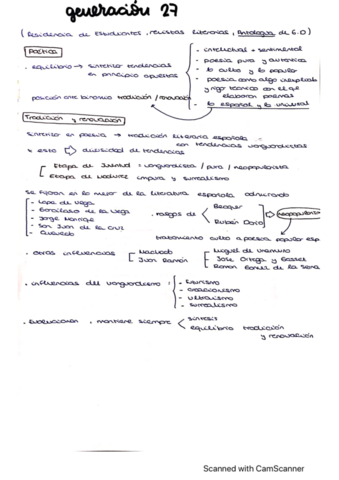 generación 27
(Residencia de Estudiantes, revistas literarias, Antología de G.D)
Poética
- intelectual = sentimental
- poesía pura y auténtica
- lo culto y lo popular
- poesía como algo inexplicable
y rigor técnico con el que
elaboran poemas
- lo español y lo universal
. equilibrio → sintetizar tendencias
en principio opuestas
posición ante binomio tradición / renovación
Tradición y renovación
Sintetiza en poesía → tradición literaria española
con tendencias vanguardistas
x esto ⇒ diversidad de tendencias
Etapa de Juventud = vanguardista / pura / neopopularista
Etapa de Madurez impura y surrealismo
Se fijaron en lo mejor de la literatura española admirando
- Lope de Vega
- Garcilaso de la Vega
- Jorge Manrique
- San Juan de la Cruz
- Quevedo
. rasgos de
Bécquer
Rubén Darío
neopopularismo
tratamiento culto a poesía popular esp
. Otras influencias
Machado
Juan Ramón
Miguel de Unamuno
Jose Ortega y Gasset
Ramón Gómez de la Serna
. influencias del vanguardismo :
- futurismo
- creacionismo
- ultraísmo
- surrealismo
. Evolucionan , mantiene siempre
síntesis
equilibrio tradición
y renovación
Scanned with CamScanner